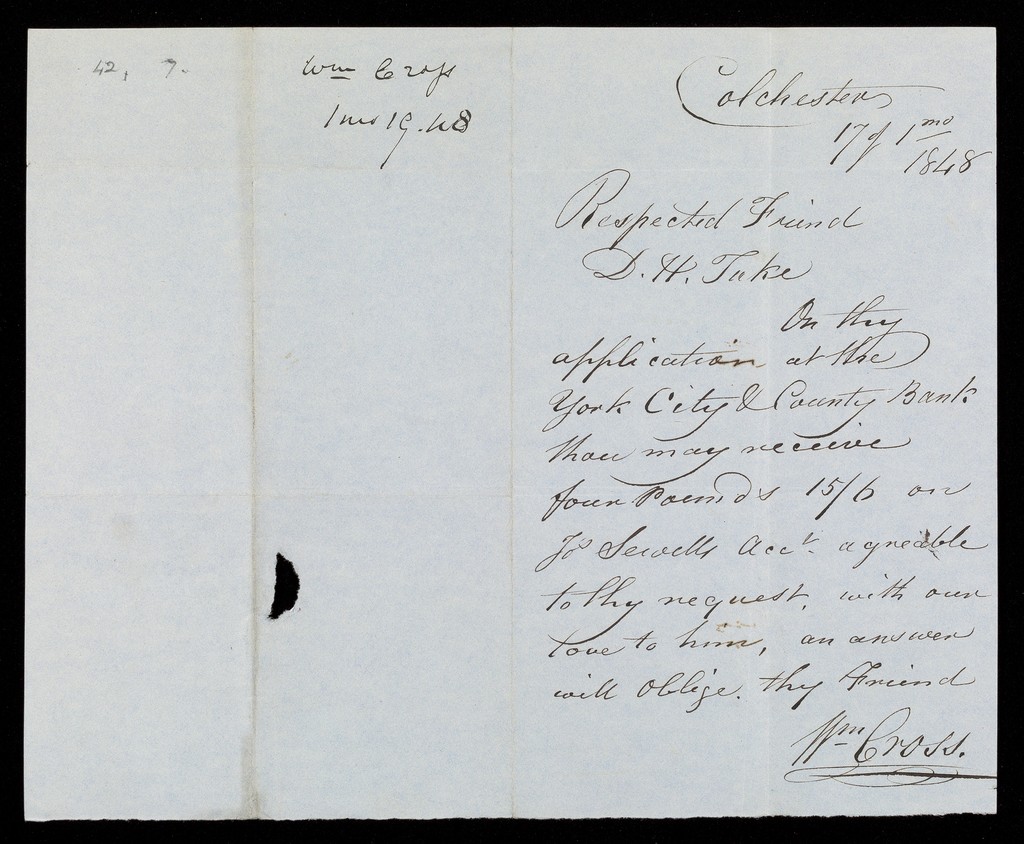 42, 7.
Wm Cross
1 mo 19. 48
Colchester
17 of 1 mo
1848
Respected Friend
D. H. Tuke
On thy
application at the
York City & County Bank
thou may receive
four Pounds 15/6 on
Jos Sewells Acct. agreable
to thy request, with our
love to him, an answer
will oblige. thy Friend
Wm Cross.